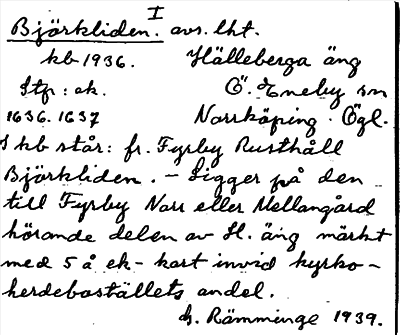 I
Björkliden. avs. lht.
kb 1936. Hälleberga äng
Stp: ek. Ö. Eneby sn
1636. 1637 Norrköping. Ögl.
I kb står: fr. Fyrby Rusthåll
Björkliden. – Ligger på den
till Fyrby Norr eller Mellangård
hörande delen av H. äng märkt
med 5 å ek-kart invid kyrko-
herdeboställets andel.
G. Rämminge 1939.